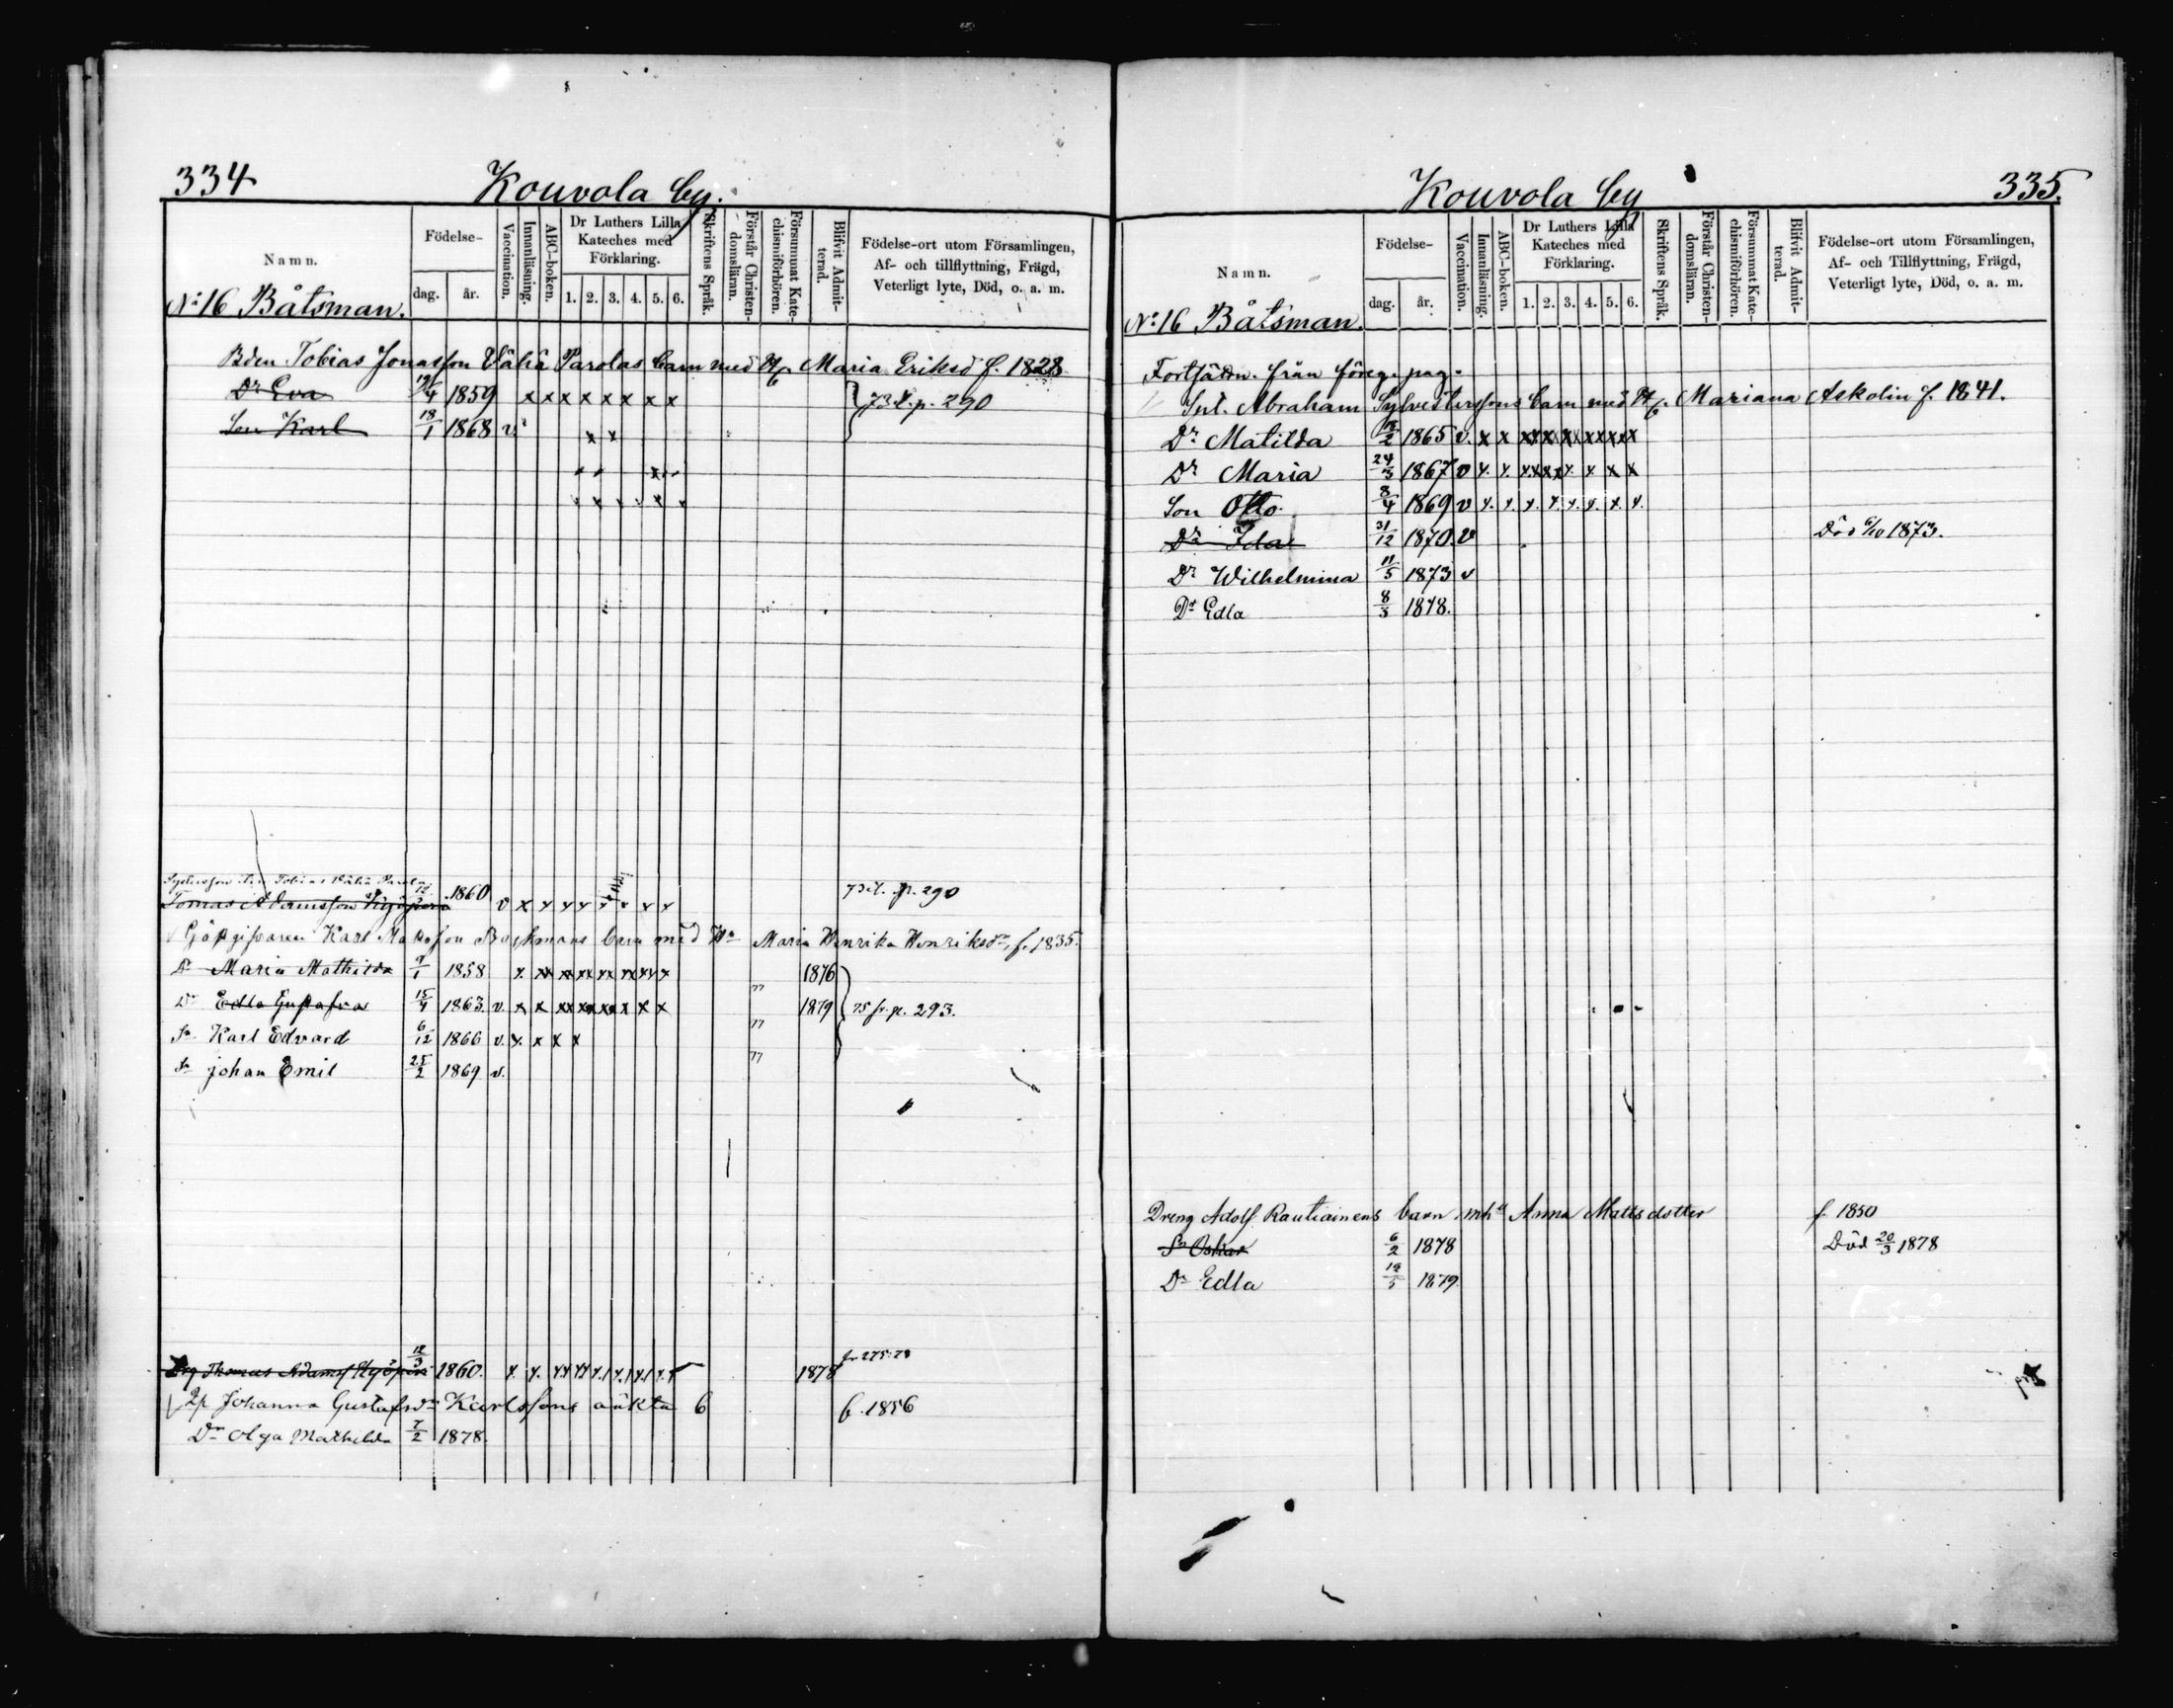 334 Kouvola by.
Namn. Födelse- dag. år. Vaccination. Innanläsning. ABC-boken. Dr Luthers Lilla Kateches med Förklaring. 1. 2. 3. 4. 5. 6. Skriftens Språk. Förstår Christendomsläran. Försummat Katechismiförhören. Blifvit Admitterad. Födelse-ort utom Församlingen, Af- och tillflyttning, Frägd, Veterligt lyte, Död, o. a. m.
No 16 Båtsman.
Bden Tobias Jonasson Vähä Parolas barn med H. Maria Eriksd f. 1828
Dr Eva 1859 x x x x x x x x 73 p. 290
Son Karl 18/1 1868 v x x
Tobias Vähä Parola
Tomas Adamsson 12 1860 v x x x x x x x p. 290
Gästgifvaren Karl barn med Maria Henrika Henriksdr, f. 1835.
Dr Maria Mathilda 1858 1876
Dr Edla Gustafva 15/4 1863 v. 1879 75 fr. p. 293.
Sn Karl Edvard 6/12 1866 v. x x x x
Sn johan Emil 25/2 1869 v.
Thomas Adamss 12/3 1860. 1878
Johanna Gustafsdr Karlssons oäkta b f. 1856
Dr Olga Mathilda 7/2 1878.
Kouvola by 335.
Namn. Födelse- dag. år. Vaccination. Innanläsning. ABC-boken. Dr Luthers Lilla Kateches med Förklaring. 1. 2. 3. 4. 5. 6. Skriftens Språk. Förstår Christendomsläran. Försummat Katechismiförhören. Blifvit Admitterad. Födelse-ort utom Församlingen, Af- och Tillflyttning, Frägd, Veterligt lyte, Död, o. a. m.
No 16 Båtsman
Fortsättn. från föreg. pag.
Abraham Sylvesterssons barn med H. Mariana Askolin f. 1841.
Dr Matilda 1865 v. x x
Dr Maria 24/3 1867 v
Son Otto 8/4 1869 v
Dr Ida 31/12 1870. v Död 6/10 1873.
Dr Wilhelmina 11/5 1873 v
Dr Edla 8/3 1878.
Dreng Adolf Rautiainens barn mh Anna Mattsdotter f. 1850
Sn Oskar 6/2 1878 Död 20/3 1878
Dr Edla 1879.